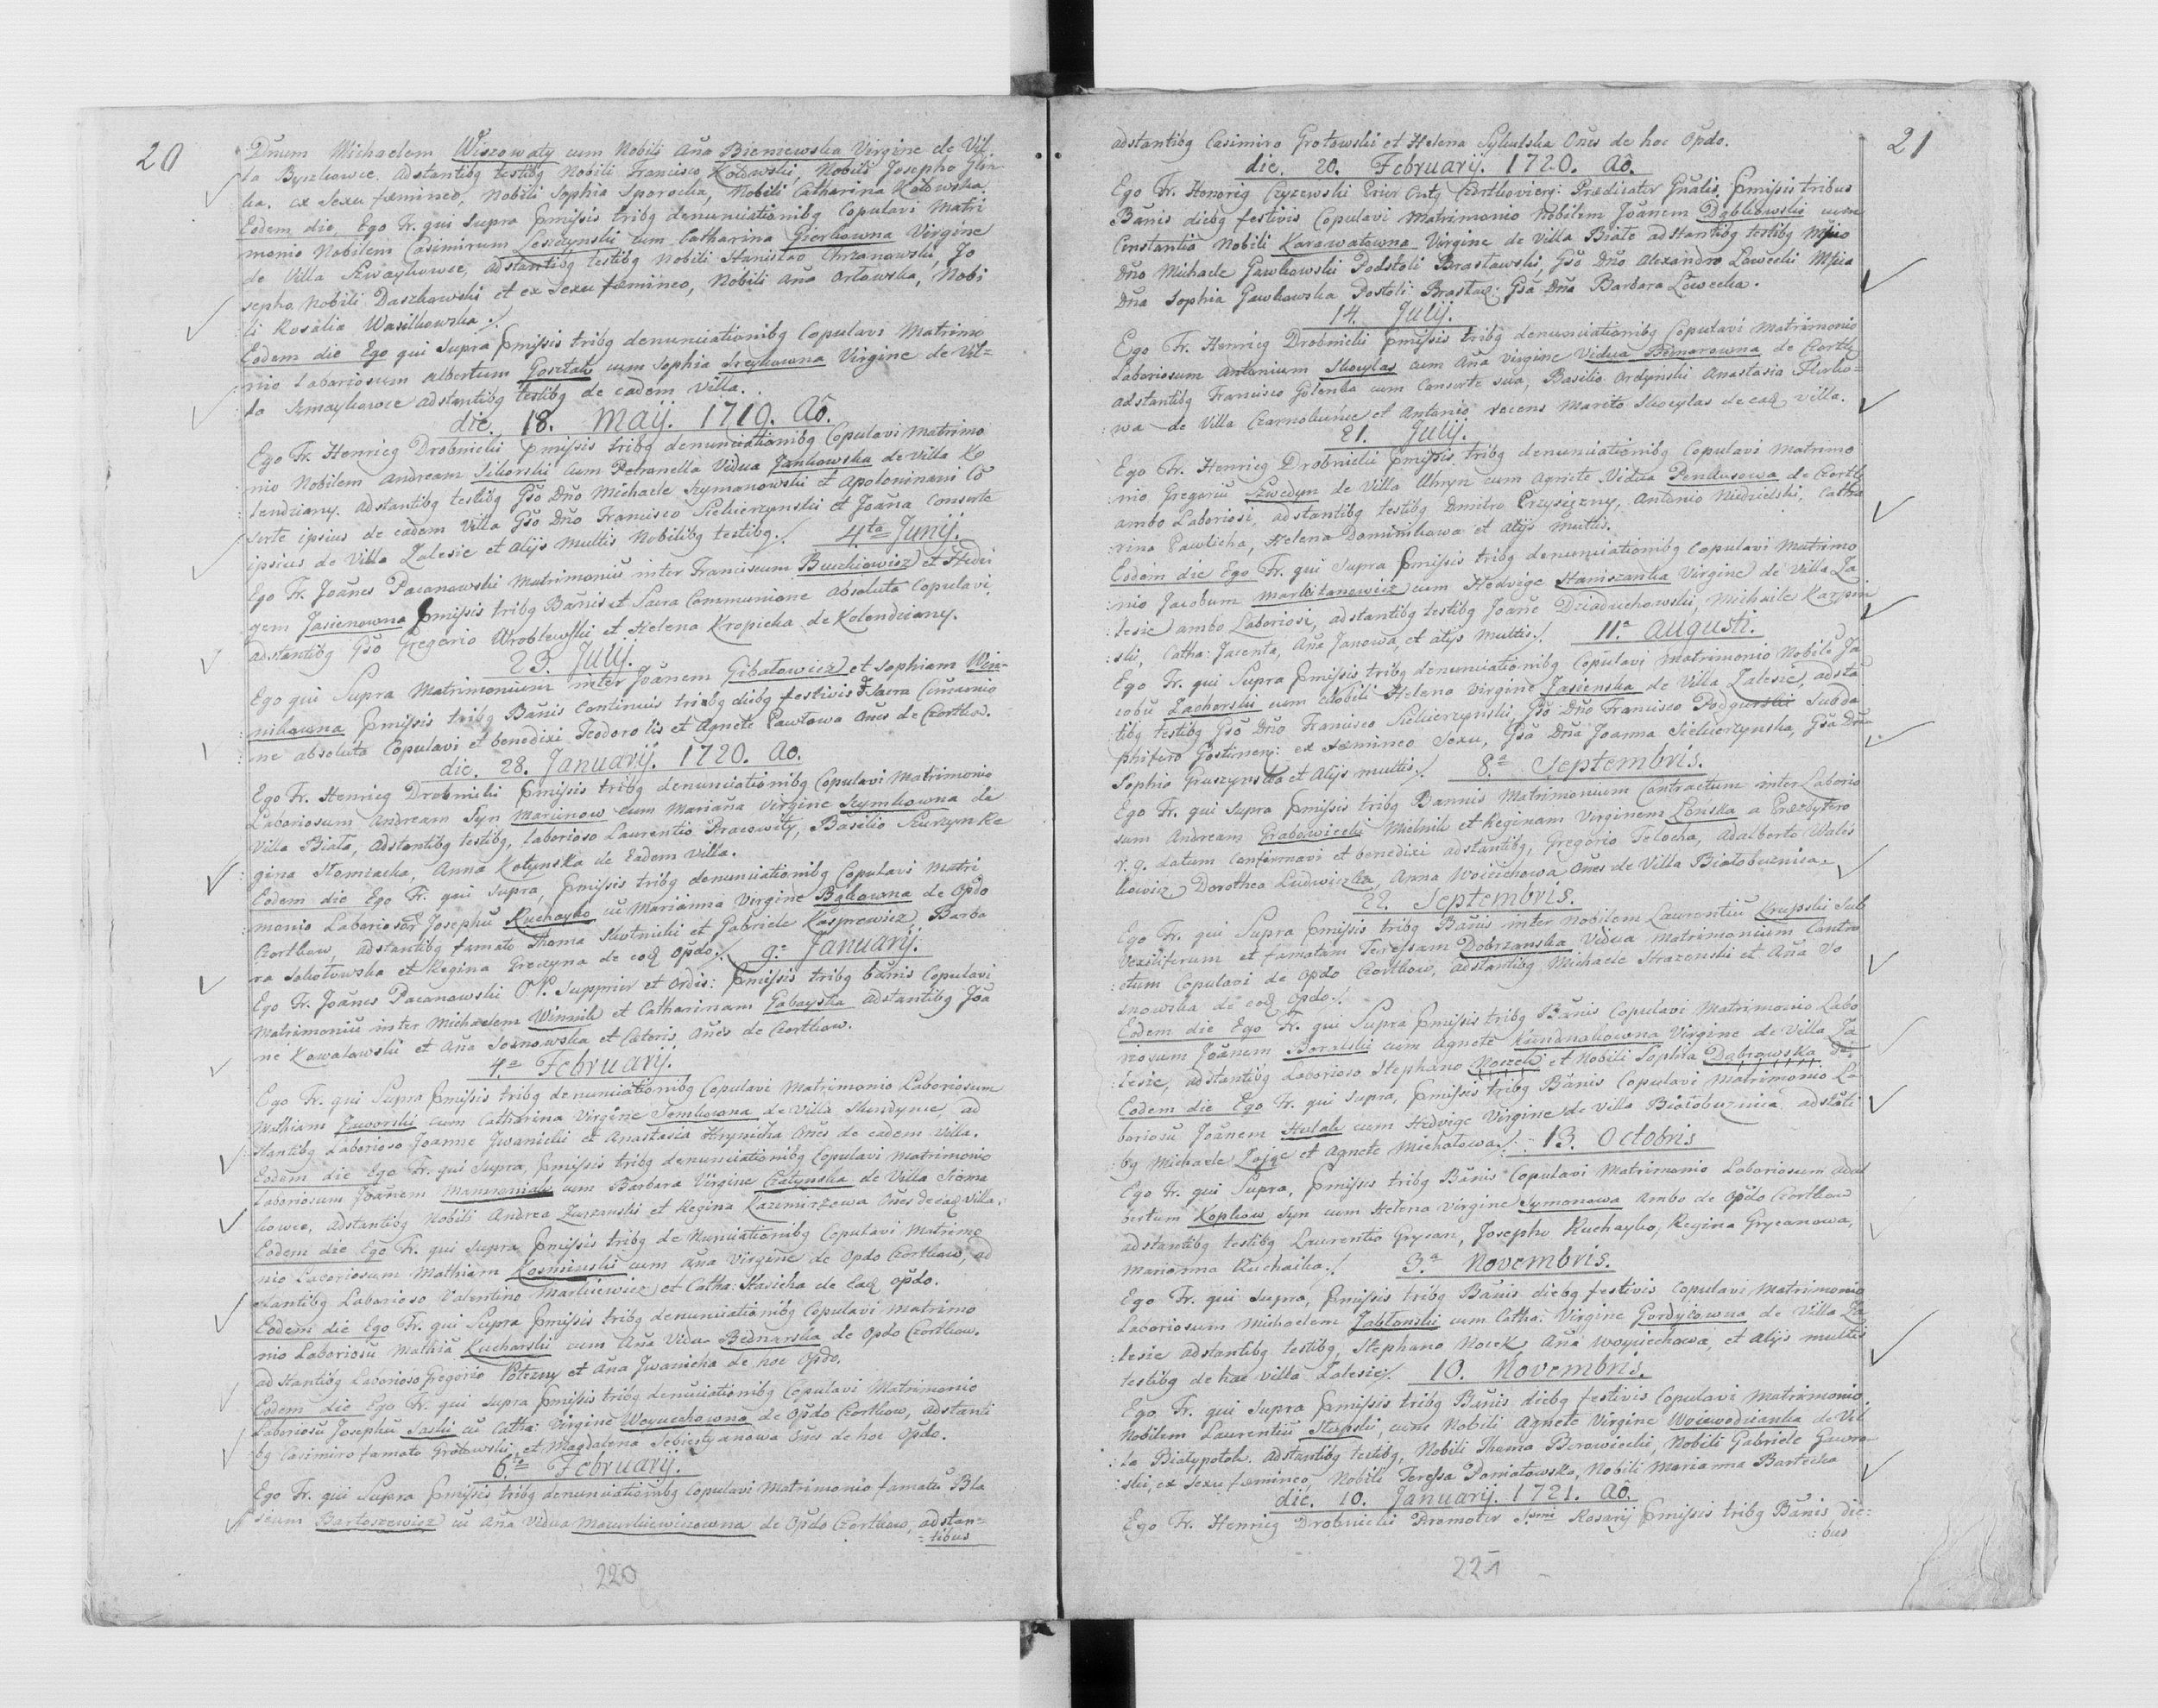 20
Dnum Michaelem Wiszowaty cum Nobili Aña Bieniewska Virgine de Vil
la Byszkowce. Adstantibg testibg Nobili Francisco Kołdwski, Nobili Josepho Glin
ka. ex Sexu fæmineo, Nobili Sophia Sporocka, Nobili Catharina Kołdwska.
Eodem die, Ego Fr. qui Supra præmissis tribg denunciationibg Copulavi Matri
monio Nobilem Casimirum Leszczynski cum Catharina Gierkowna Virgine
de Villa Szwaykowce, adstantibg testibg Nobili Stanislao Chrzanowski, Jo
sepho Nobili Daszkowski et ex Sexu fæmineo, Nobili Aña Orłowska, Nobi
li Rosalia Wasilkowska ./.
Eodem die Ego qui Supra præmissis tribg denunciationibg Copulavi Matrimo
nio Laboriosum Albertum Gosztak cum Sophia Szeykowna Virgine de Vil=
la Szmaykowce adstantibg testibg de eadem Villa.
die. 18. Maij. 1719. Aô.
Ego Fr. Henricg Drobnicki præmissis tribg denunciationibg Copulavi Matrimo
nio Nobilem Andream Sikorski cum Petronella Vidua Jankowska de Villa Ko
lendziany. adstantibg testibg Gso Dno Michaele Szymanowski et Apoloninani Co
sorte ipsius de eadem Villa Gso Dno Francisco Siekierzynski et Joaña Consorte
ipsius de Villa Zalesie et Alijs Multis Nobilibg testibg ./. 4ta Junij.
Ego Fr. Joanes Pacanowski Matrimoniũ inter Franciscum Buckiewicz et Hedvi
gem Jasienowna præmissis tribg Bañis et Sacra Communione absoluta Copulavi.
adstantibg Gso Gregorio Wroblewski et Helena Kropicka de Kolendziany.
23. Julij.
Ego qui Supra Matrimonium inter Joanem Gibałowicz et Sophiam Win-
nikowna præmissis tribg Bañis Continuis tribg diebg festivis Sacra Comunio
ne absoluta Copulavi et benedixi Teodoro lis et Agnete Pawłowa Oñes de Czortkow.
die. 28. Januarij. 1720. Ao.
Ego Fr. Henricg Drobnicki præmissis tribg denunciationibg Copulavi Matrimonio
Laboriosum Andream Syn Marcinow cum Mariaña Virgine Szymkowna de
Villa Biała, Adstantibg testibg, laborioso Laurentio Pracowity, Basilio Szurzyn Re
gina Słomiacka, Anna Kotynska de Eadem Villa.
Eodem die Ego Fr. qui Supra, præmissis tribg denunciationibg Copulavi Matri
monio Laboriosũ Josephũ Kuchayko cũ Marianna Virgine Bąkowna de Opdo
Czortkow, adstantibg famato Thoma Skotnicki et Gabriele Kasprewicz, Barba
ra Sokołowska et Regina Greczyna de eod opdo ./. 9a Januarij.
Ego Fr. Joanes Pacanowski Supprior et Ordis: præmissis tribg bañis Copulavi
Matrimoniũ inter Michaelem Winnik et Catharinam Gabayska adstantibg Joa
ne Kowalowski et Aña Sosnowska et Cæteris Oñes de Czortkow.
4a February.
Ego Fr. qui Supra præmissis tribg denunciationibg Copulavi Matrimonio Laboriosum
Mathiam Jaworski cum Catharina Virgine Semkowna de Villa Skorodyńce, ad
stantibg Laborioso Joanne Iwanicki et Anastasia Hrynicka Oñes de eadem Villa.
Eodem die Ego Fr. qui Supra, præmissis tribg denunciationibg Copulavi Matrimonio
Laboriosum Joanem Manasoniak cum Barbara Virgine Czatynska de Villa Siema
kowce, Adstantibg Nobili Andrea Zurzanski et Regina Kazimirzewa Oñes de eaq Villa.
Eodem die Ego Fr. qui Supra præmissis tribg denunciationibg Copulavi Matrimo
nio Laboriosum Mathiam Kosminski cum Aña Virgine de Opdo Czortkow, ad
stantibg Laborioso Valentino Markiewicz et Catha: Stasicka de Eaq opdo.
Eodem die Ego Fr. qui Supra præmissis tribg denunciationibg Copulavi Matrimo
nio Laboriosũ Mathiã Kucharski cum Aña Vidua Bednarska de Opdo Czortkow.
ad stantibg Laborioso Gregorio Potezny et Aña Iwanicka de hoc Opdo.
Eodem die Ego Fr. qui Supra præmissis tribg denuciationibg Copulavi Matrimonio
Laboriosũ Josephũ Saski cũ Catha: Virgine Woyciechowna de Opdo Czortkow, adstanti
bg Casimiro famato Grotowski, et Magdalena Sebiestyanowa Oñes de hoc Opdo.
6ta February.
Ego Fr. qui Supra præmissis tribg denunciationibg Copulavi Matrimonio famatũ Bla
sium Bartoszewicz cũ Aña Vidua Mazurkiewiczowna de Opdo Czortkow, adstan=
=tibus
220
21
adstantibg Casimiro Grotowski et Helena Sykulska Oñes de hoc Opdo.
die. 20. Februarij. 1720. Aô.
Ego Fr. Honorig Czyzewski Prior Contg Czortkovieng: Prædicator Gñalis, præmissis tribus
Bañis diebg festivis Copulavi Matrimonio Nobilem Joañem Dąbkowski cum
Constantia Nobili Karawatowna Virgine de Villa Białe adstantibg testibg Mfico
Dño Michaele Gawkowski Podstoli Brasławski, Gso Dño Alexandro Lowecki Mfica
Dña Sophia Gawkowska Postoli: Brasław: Gsa Dña Barbara Lowecka.
14. Julij.
Ego Fr. Henricg Drobnicki præmissis tribg denunciationibg Copulavi Matrimonio
Laboriosum Antonium Skocylas cum Aña virgine Vidua Bednarowna de Czortk
adstantibg Francisco Golenka cum Consorte sua, Basilio Ordynski Anastasia Flisko=
wa de Villa Czarnokuńce et Antonio recens Marito Skocylas de eaq villa.
21. Julij.
Ego Fr. Henricg Drobnicki præmissis tribg denunciationibg Copulavi Matrimo
nio Gregoriũ Szwedyn de Villa Uhryn cum Agnete Vidua Penkusowa de Czortk
ambo Laboriosi, adstantibg testibg Dmitro Przysiężny, Antonio Niedzielski, Catha
rina Pawlicha, Helena Dominikowa et Alijs Multis.
Eodem die Ego Fr. qui Supra præmissis tribg denunciationibg Copulavi Matrimo
nio Jacobum Markitanowicz cum Hedvige Staniszanka Virgine de Villa Za
lesie) ambo Laboriosi, adstantibg testibg Joañe Dziaduchowski, Michaile Karpin
ski, Catha: Jacenta, Aña Janowa, et alijs multis ./. 11a Augusti.
Ego Fr. qui Supra præmissis tribg denunciationibg Copulavi Matrimonio Nobilē Ja
cobũ Zachorski cum Nobili Helena Virgine Jasienska de Villa Zalesie, adstã
tibg testibg Gso Dño Francisco Siekierzynski, Gso Dño Francisco Podgurski Subda
phifero Gostinen: ex fæmineo Sexu, Gsa Dña Joanna Siekierzynska, Gsa Dña
Sophia Gruszynska et Alijs multis ./. 8a Septembris.
Ego Fr. qui Supra præmissis tribg Bannis Matrimonium Contractum inter Laborio
sum Andream Grabowiecki Mielnik et Reginam Virginem Lonska a Præzbytero
r. g. datum Confirmavi et benedixi adstantibg, Gregorio Telocha, Adalberto Wales
kowicz, Dorothea Ludwiczka, Anna Woiciechowa Oñes de Villa Białobuznica.
22. Septembris.
Ego Fr. qui Supra præmissis tribg Bañis inter Nobilem Laurentiũ Krupski Sub
Vexiliferum et famatam Teressam Dobrzanska Vidua Matrimonium Contra
ctum Copulavi de opdo Czortkow, adstantibg Michaele Strazenski et Aña So
snowska de eoq Opdo ./.
Eodem die Ego Fr. qui Supra præmissis tribg Bañis Copulavi Matrimonio Labo
riosum Joañem Boralski cum Agnete Kundrakowna Virgine de Villa Za
lesie, adstantibg Laborioso Stephano Noczek et Nobili Sophia Dąbrowska
Eodem die Ego Fr. qui Supra, præmissis tribg Bañis Copulavi Matrimonio La
boriosũ Joañem Hulak cum Hedvige Virgine de Villa Białobuznica adstãti
bg Michaele Zając et Agnete Michałowa ./. 13. Octobris
Ego Fr. qui Supra, præmissis tribg Bañis Copulavi Matrimonio Laboriosum Adal
bertum Kopkow Syn cum Helena virgine Symonowa Ambo de Opdo Czortkow
adstantibg testibg Laurentio Grycan, Josepho Kuchayko, Regina Grycanowa,
Marianna Kuchaika ./. 3a Novembris.
Ego Fr. qui Supra, præmissis tribg Bañis diebg festivis Copulavi Matrimonio
Laboriosum Michaelem Jabłonski cum Catha: Virgine Gordyiowna de Villa Za
lesie adstantibg testibg, Stephano Nocek, Aña Woyciechowa, et Alijs multis
testibg de hac villa Zalesie ./. 10. Novembris.
Ego Fr. qui Supra præmissis tribg Bañis diebg festivis Copulavi Matrimonio
Nobilem Laurentiũ Stepski, cum Nobili Agnete Virgine Woiewodzianka de Vil
la Białypotok. Adstantibg testibg, Nobili Thoma Borowiecki, Nobili Gabriele Gawro
ski, ex Sexu fæmineo, Nobili Teressa Poniatowska, Nobili Marianna Barticka
die. 10. Januarij. 1721. Aô.
Ego Fr. Henricg Drobnicki Promotor Ssmi Rosarij præmissis tribg Bañis die:
:bus
221